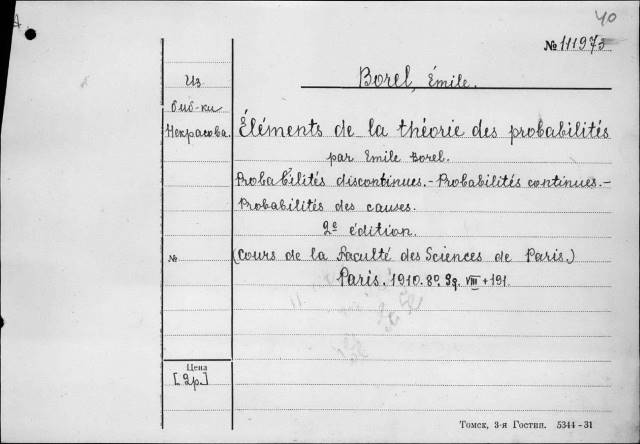 40
№ 111973
Из
биб-ки
Некрасова.
Borel, Émile.
Éléments de la théorie des probabilités
par Emile Borel.
Probabilités discontinues.-Probabilités continues.-
Probabilités des causes.
2e édition.
№
(Cours de la Faculté des Sciences de Paris.)
Paris. 1910. 8º. VIII + 191.
Цена
[2р.]
Томск, 3-я Гостип. 5344-31